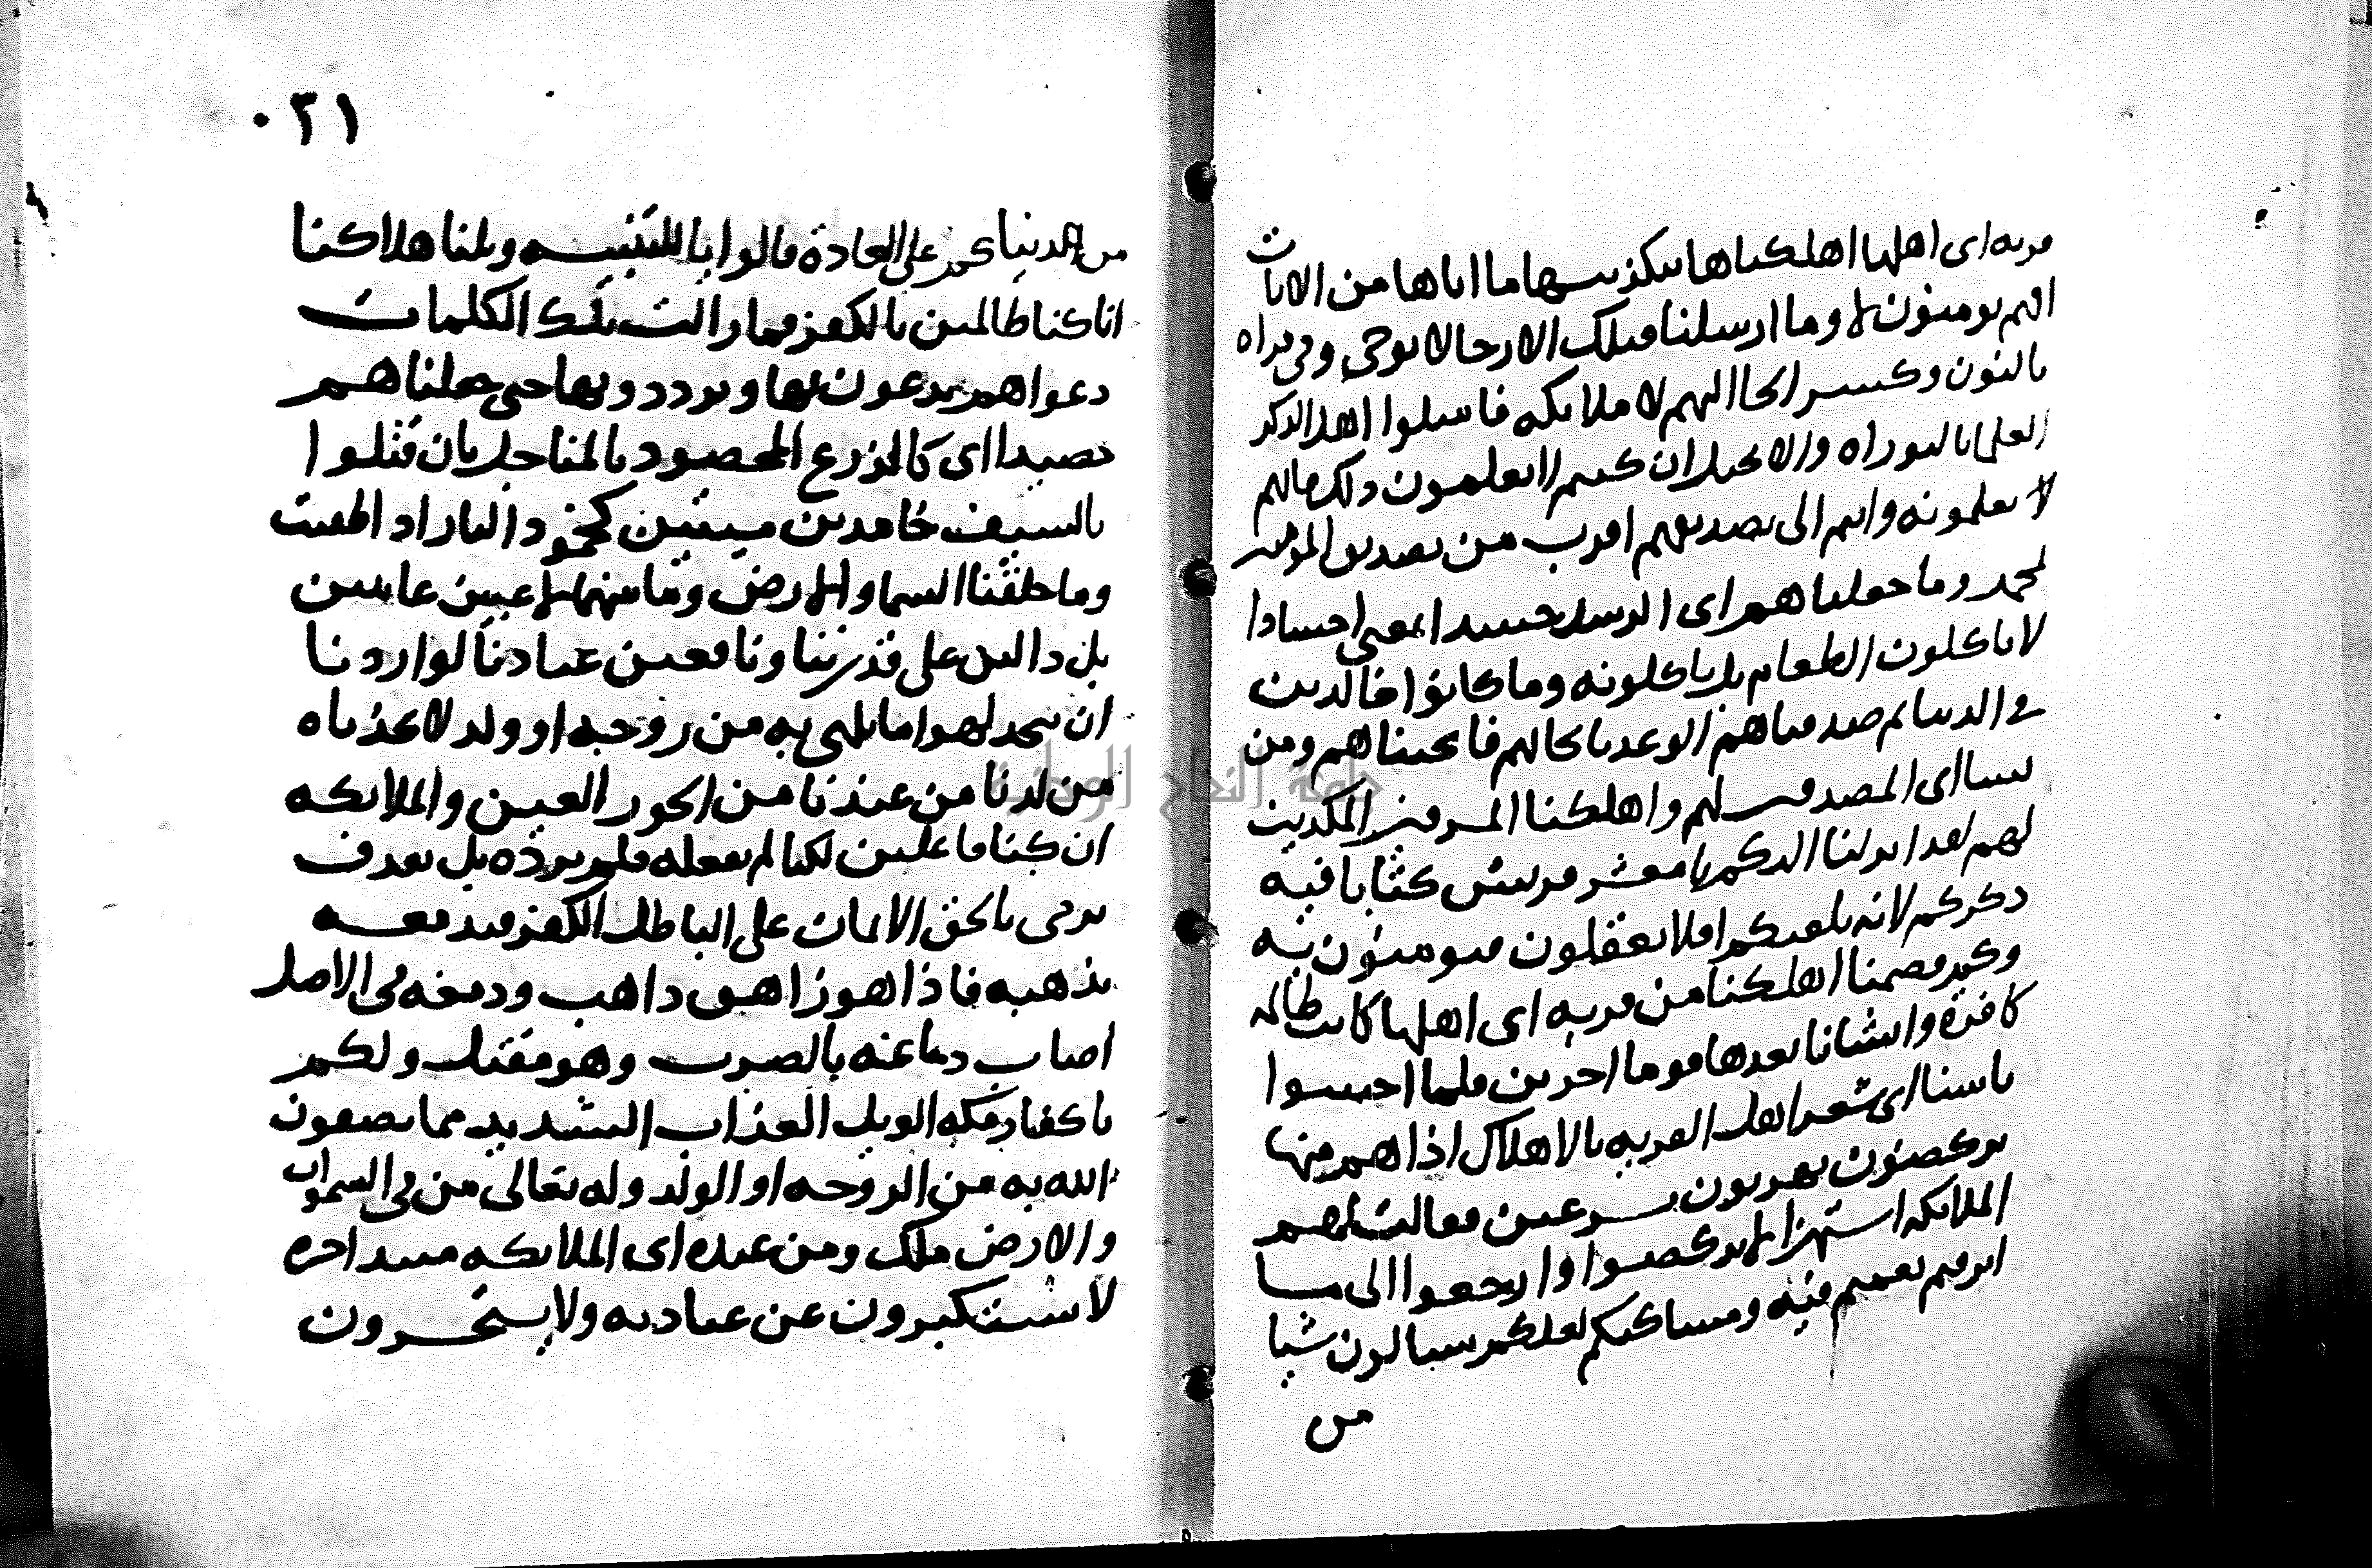 قريه اى اهلها اهلكناها بتكذيبها ما اتاها من الايات
افهم يومنون لا وما ارسلنا قبلك الا رجالا يوحى وفى قراه
بالنون وكسر الحا اليهم لا ملايكه فاسلوا اهل الذكر
العلما بالتوراه والانجيل ان كنتم لا تعلمون ذلك فانهم
لا يعلمونه وانتم الى تصديقهم اقرب من تصديق المومنين
لمحمد وما جعلناهم اى الرسل جسدا بمعنى اجسادا
لا ياكلون الطعام بل ياكلونه وما كانوا خالدين
فى الدنيا ثم صدقناهم الوعد بانجائهم فانجيناهم ومن
نشا اى المصدقين لهم واهلكنا المسرفين المكذبين
لهم لقد انزلنا اليكم يا معشر قريش كتابا فيه
ذكركم لانه بلغتكم افلا تعقلون فتومنون به
وكم قصمنا اهلكنا من قريه اى اهلها كانت ظالمه
كافرة وانشانا بعدها قوما اخرين فلما احسوا
باسنا اى شعر اهل القريه بالاهلاك اذا هم منها
يركضون يهربون مسرعين فقالت لهم
الملايكه استهزا لا تركضوا وارجعوا الى ما
اترفتم نعمتم فيه ومساكنكم لعلكم تسالون شيا
من
٠٢١
من الدنياكم على العادة قالوا يا للتنبيه ويلنا هلاكنا
انا كنا ظالمين بالكفر فما زالت تلك الكلمات
دعواهم يدعون بها ويرددونها حتى جعلناهم
حصيدا اى كالزرع المحصود بالمناجل بان قتلوا
بالسيف خامدين ميتين كخمود النار اذ اطفيت
وما خلقنا السما والارض وما بينهما لاعبين عابثين
بل دالين على قدرتنا ونافعين عبادنا لو اردنا
ان نتخذ لهوا ما يلهى به من زوجه او ولد لاتخذناه
من لدنا من عندنا من الحور العين والملايكه
ان كنا فاعلين لكنا لم نفعله فلم نرده بل نقذف
نرمى بالحق الايمان على الباطل الكفر فيدمغه
يذهبه فاذا هو زاهق ذاهب ودمغه فى الاصل
اصاب دماغه بالضرب وهو مقتل ولكم
يا كفار مكه الويل العذاب الشديد مما تصفون
الله به من الزوجه او الولد وله تعالى من فى السموات
والارض ملك ومن عنده اى الملايكه مبتدا خبره
لا يستكبرون عن عبادته ولا يستحسرون
جامعة النجاح الوطنية